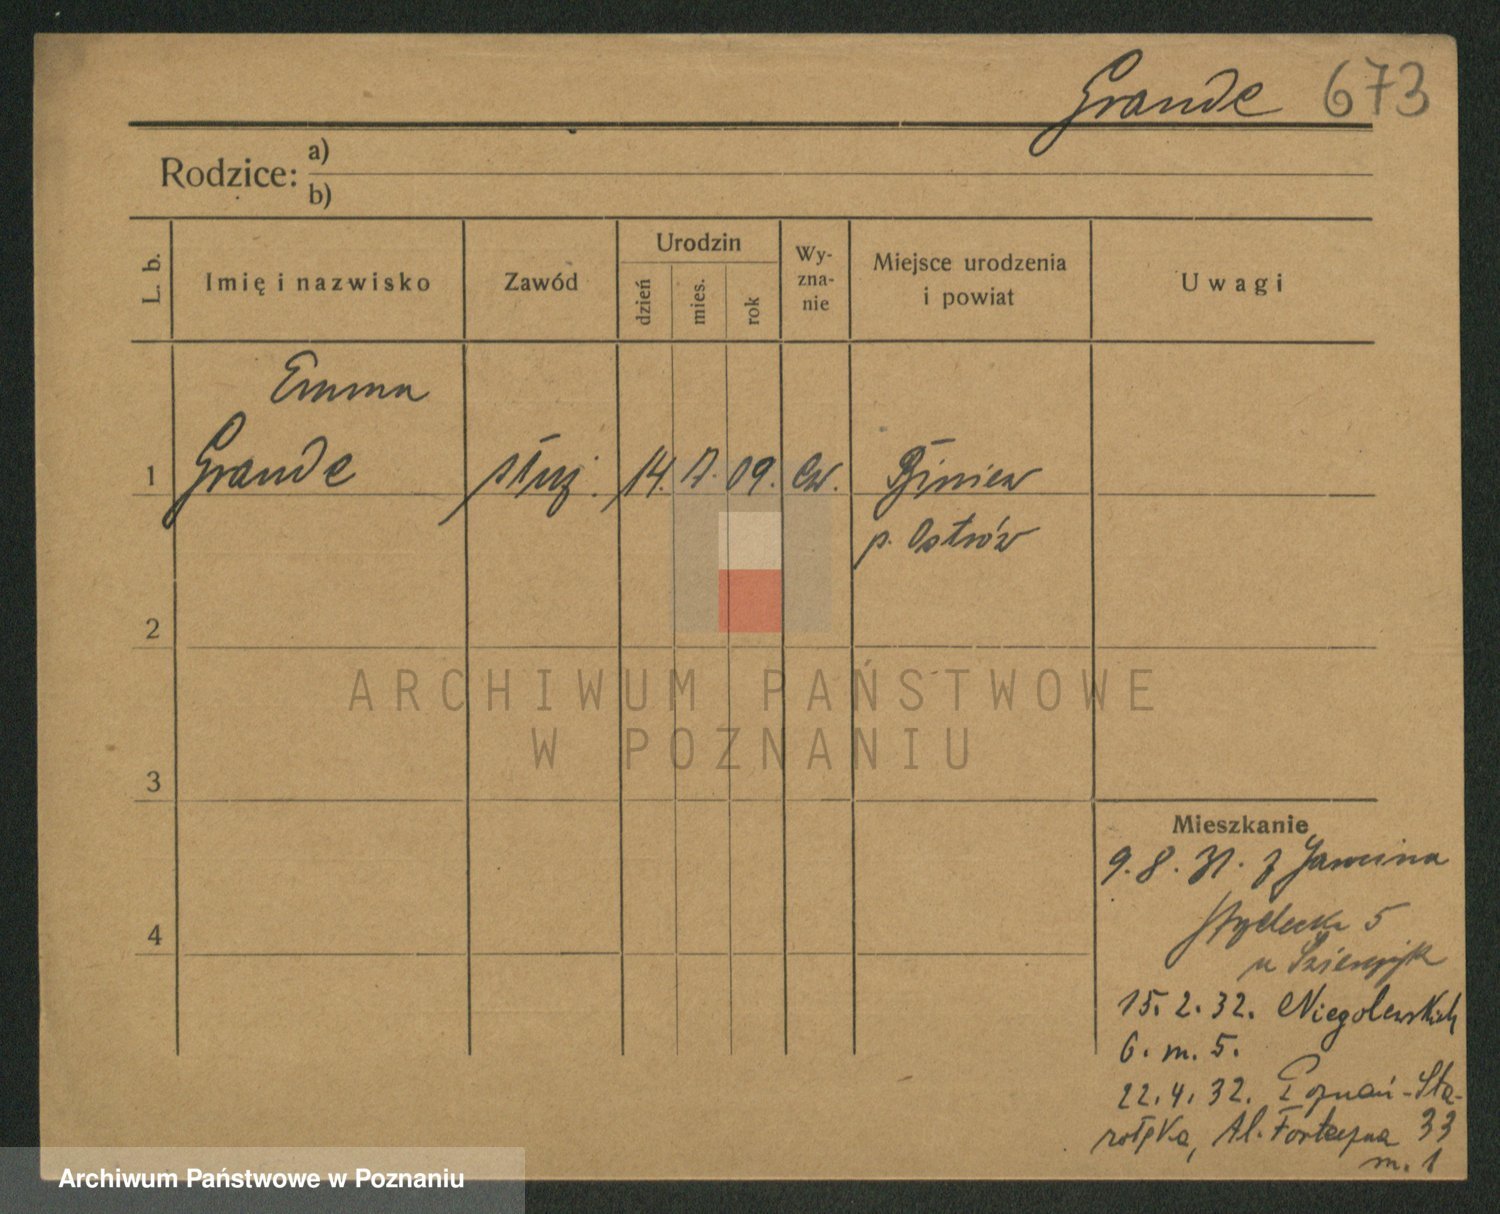 Grande 673
Rodzice: a)
b)
L. b.
Imię i nazwisko
Zawód
Urodzin
dzień
mies.
rok
Wy-
zna-
nie
Miejsce urodzenia
i powiat
Uwagi
Emma
1 Grande służ. 14. 09. Ew. Biniew
p. Ostrów
2
3
4
ARCHIWUM PAŃSTWOWE
W POZNANIU
Mieszkanie
9. 8. 31. z Janowina
5
u
15. 2. 32. Niegolewskich
6. m. 5.
22. 4. 32. Poznań-Sta-
rołęka, Al. Forteczna 33
m. 1
Archiwum Państwowe w Poznaniu